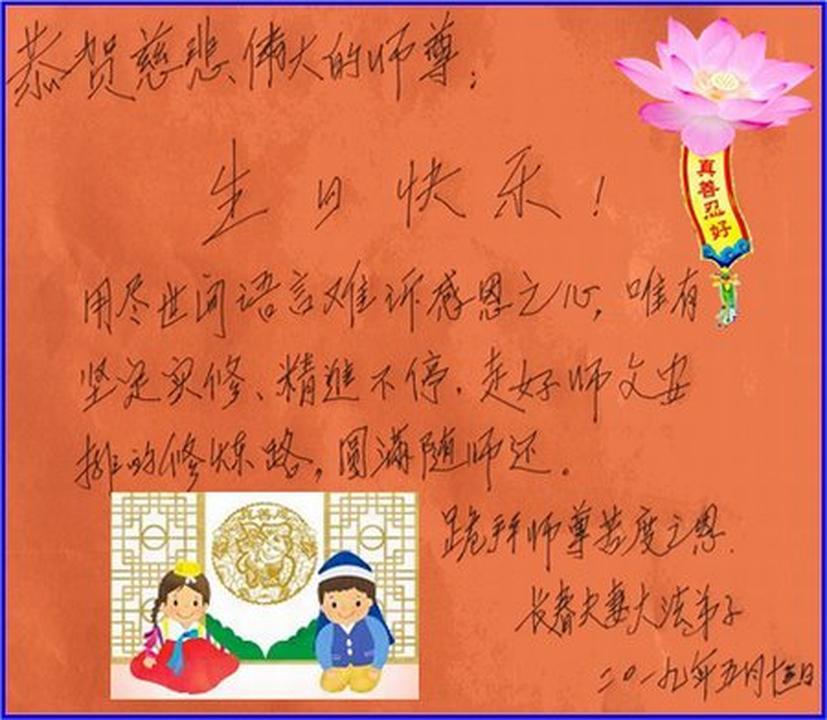 恭贺慈悲、伟大的师尊:
生日快乐!
真善忍好
用尽世间语言难诉感恩之心,唯有
坚定实修、精進不停.走好师父安
排的修炼路,圆满随师还。
跪拜师尊苦度之恩.
长春夫妻大法弟子
二〇一九年五月十三日